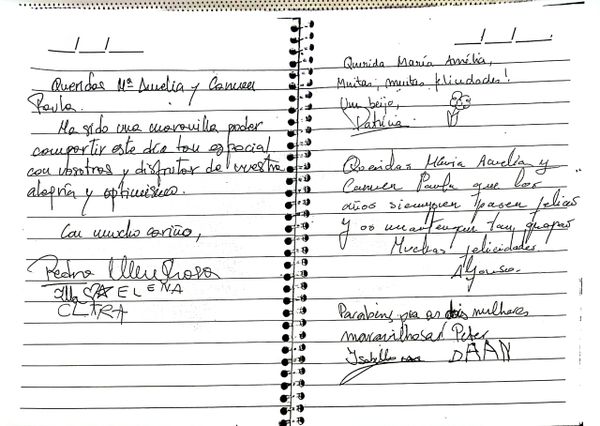 Queridas Mª Amelia y Carmen
Paula.
Ha sido una maravilla poder
compartir este día tan especial
con vosotros y disfrutar de vuestra
alegría y optimismo.
Con mucho cariño,
Pedro
ELENA
CLARA
Querida María Amélia,
Muitas, muitas felicidades!
Um beijo,
Patricia
Queridas María Amelia y
Carmen Paula que los
años siempre pasen felices
y os mantengan tan guapas
Muchas felicidades
Alfonso.
Parabéns pra as dois mulheres
maravilhosas Peter
Ysabella DAAN